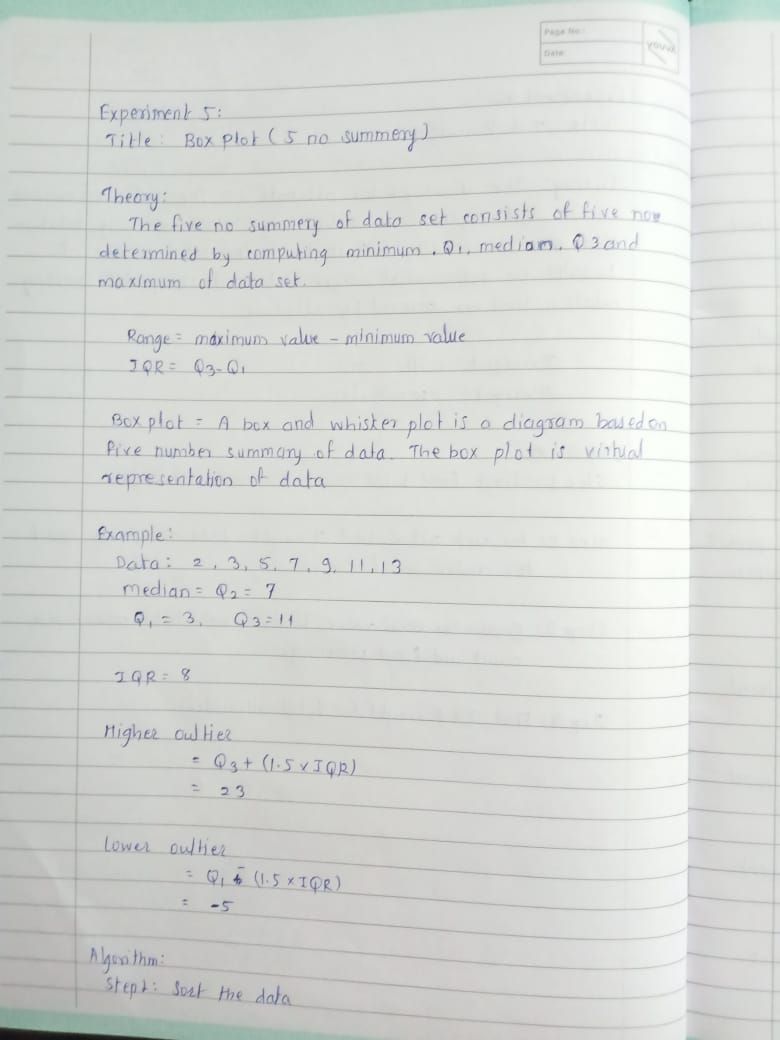 Page No:
Date:
youva
Experiment 5:
Title: Box plot (5 no summery)
Theory:
The five no summery of data set consists of five nos
determined by computing minimum, Q1, median, Q3 and
maximum of data set.
Range = maximum value - minimum value
IQR = Q3-Q1
Box plot = A box and whisker plot is a diagram based on
five number summary of data. The box plot is virtual
representation of data
Example:
Data: 2, 3, 5, 7, 9, 11, 13
median = Q2 = 7
Q1 = 3, Q3 = 11
IQR = 8
Higher outlier
= Q3 + (1.5 x IQR)
= 23
Lower outlier
= Q1 - (1.5 x IQR)
= -5
Algorithm:
Step1: Sort the data